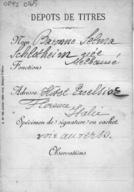 DEPOTS DE TITRES
Nom Baronne Selma
Schlotheim née
Fonctions
Adresse Hôtel Excelsior
Florence
Italie
Spécimen de signature ou cachet
voir au verso.
Observations